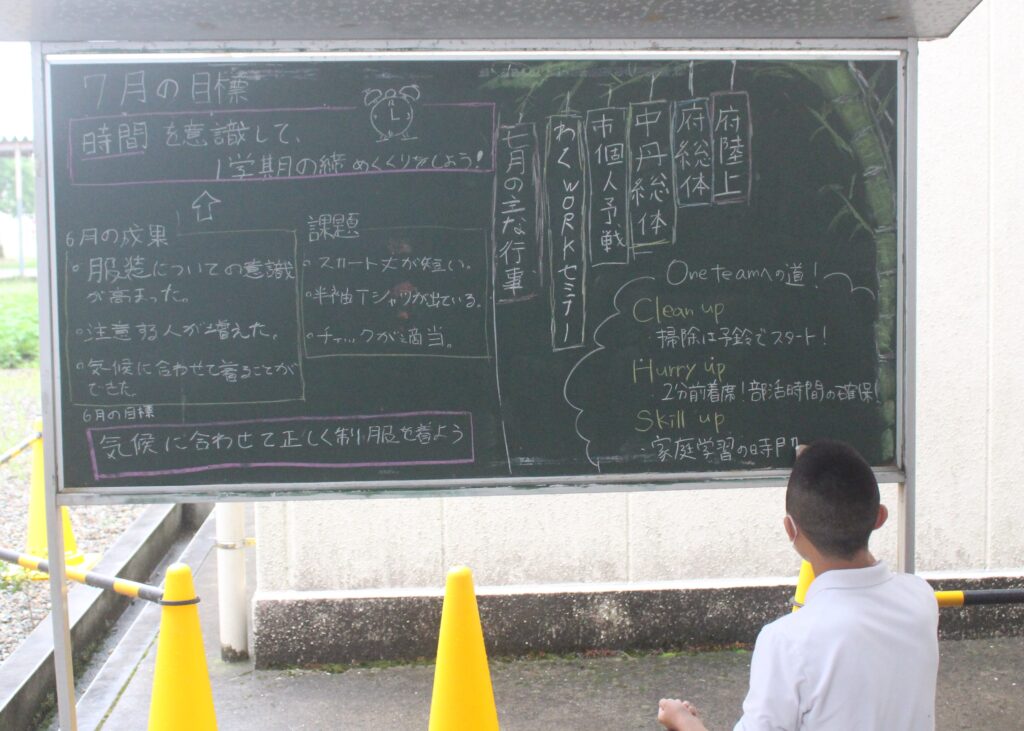 7月の目標
時間を意識して、
1学期の締めくくりをしよう!
6月の成果
・服装についての意識
が高まった。
・注意する人が増えた。
・気候に合わせて着ることが
できた。
課題
・スカート丈が短い。
・半袖Tシャツが出ている。
・チェックが適当。
6月の目標
気候に合わせて正しく制服を着よう
府陸上
府総体
中丹総体
市個人予戦
わくWORKセミナー
七月の主な行事
One teamへの道!
Clean up
・掃除は予鈴でスタート!
Hurry up
・2分前着席!部活時間の確保!
Skill up
・家庭学習の時間